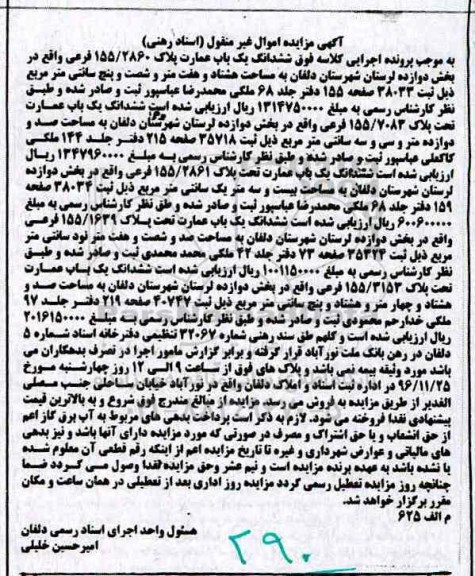 آگهی مزایده اموال غیر منقول (اسناد رهنی)
به موجب پرونده اجرایی کلاسه فوق ششدانگ یک باب عمارت پلاک ۱۵۵/۲۸۶۰ فرعی واقع در
بخش دوازده لرستان شهرستان دلفان به مساحت هشتاد و هفت متر و شصت و پنج سانتی متر مربع
ذیل ثبت ۳۸۰۳۳ صفحه ۱۵۵ دفتر جلد ۶۸ ملکی محمدرضا عباسپور ثبت و صادر شده و طبق
نظر کارشناس رسمی به مبلغ ۱۳۱۴۷۵۰۰۰۰ ریال ارزیابی شده است ششدانگ یک باب عمارت
تحت پلاک ۱۵۵/۷۰۸۳ فرعی واقع در بخش دوازده لرستان شهرستان دلفان به مساحت صد و
دوازده متر و سی و سه سانتی متر مربع ذیل ثبت ۳۵۷۱۸ صفحه ۲۱۵ دفتر جلد ۱۴۴ ملکی
کاکعلی عباسپور ثبت و صادر شده و طبق نظر کارشناس رسمی به مبلغ ۱۳۴۷۹۶۰۰۰۰ ریال
ارزیابی شده است ششدانگ یک باب عمارت تحت پلاک ۱۵۵/۲۸۶۱ فرعی واقع در بخش دوازده
لرستان شهرستان دلفان به مساحت بیست و سه متر یک سانتی متر مربع ذیل ثبت ۳۸۰۳۴ صفحه
۱۵۹ دفتر جلد ۶۸ ملکی محمدرضا عباسپور ثبت و صادر شده و طق نظر کارشناس رسمی به مبلغ
۶۰۰۶۰۰۰۰۰ ریال ارزیابی شده است ششدانگ یک باب عمارت تحت پلاک ۱۵۵/۱۶۳۹ فرعی
واقع در بخش دوازده لرستان شهرستان دلفان به مساحت صد و شصت و هفت متر نود سانتی متر
ذیل ثبت ۳۵۳۲۴ صفحه ۷۳ دفتر جلد ۴۲ ملکی محمد محمدی ثبت و صادر شده و طبق
نظر کارشناس رسمی به مبلغ ۱۰۰۱۱۵۰۰۰۰ ریال ارزیابی شده است ششدانگ یک باب عمارت
تحت پلاک ۱۵۵/۳۱۵۳ فرعی واقع در بخش دوازده لرستان شهرستان دلفان به مساحت صد و
هشتاد و چهار متر و هشتاد و پنج سانتی متر مربع ذیل ثبت ۴۰۷۴۷ صفحه ۲۱۹ دفتر جلد ۹۷
ملکی خدارحم محمودی ثبت و صادر شده و طبق نظر کارشناس رسمی به مبلغ ۲۰۱۶۱۵۰۰۰۰
ریال ارزیابی شده است و کلهم طق سند رهنی شماره ۳۲۰۶۷ تنظیمی دفترخانه اسناد شماره ۵
دلفان در رهن بانک ملت نورآباد قرار گرفته و برابر گزارش مامور اجرا در تصرف بدهکاران می
باشد مورد وثیقه بیمه نمی باشد و پلاک های فوق از ساعت ۹ الی ۱۲ روز چهارشنبه مورخ
۹۶/۱۱/۲۵ در اداره ثبت اسناد و املاک دلفان واقع در نورآباد خیابان ساحلی جنب مصلی
الغدیر از طریق مزایده به فروش می رسد. مزایده از مبالغ مندرج فوق شروع و به بالاترین قیمت
پیشنهادی نقدا فروخته می شود. لازم به ذکر است پرداخت بدهی های مربوط به آب برق گاز اعم
از حق انشعاب و یا حق اشتراک و مصرف در صورتی که مورد مزایده دارای آنها باشد و نیز بدهی
های مالیاتی و عوارض شهرداری و غیره تا تاریخ مزایده اعم از اینکه رقم قطعی آن معلوم شده
یا نشده باشد به عهده برنده مزایده است و نیم عشر وحق مزایده نقدا وصول می گردد ضما
چنانچه روز مزایده تعطیل رسمی گردد مزایده روز اداری بعد از تعطیلی در همان ساعت و مکان
مقرر برگزار خواهد شد.
م الف ۶۲۵
مسئول واحد اجرای اسناد رسمی دلفان
امیرحسین خلیلی
۲۹۰